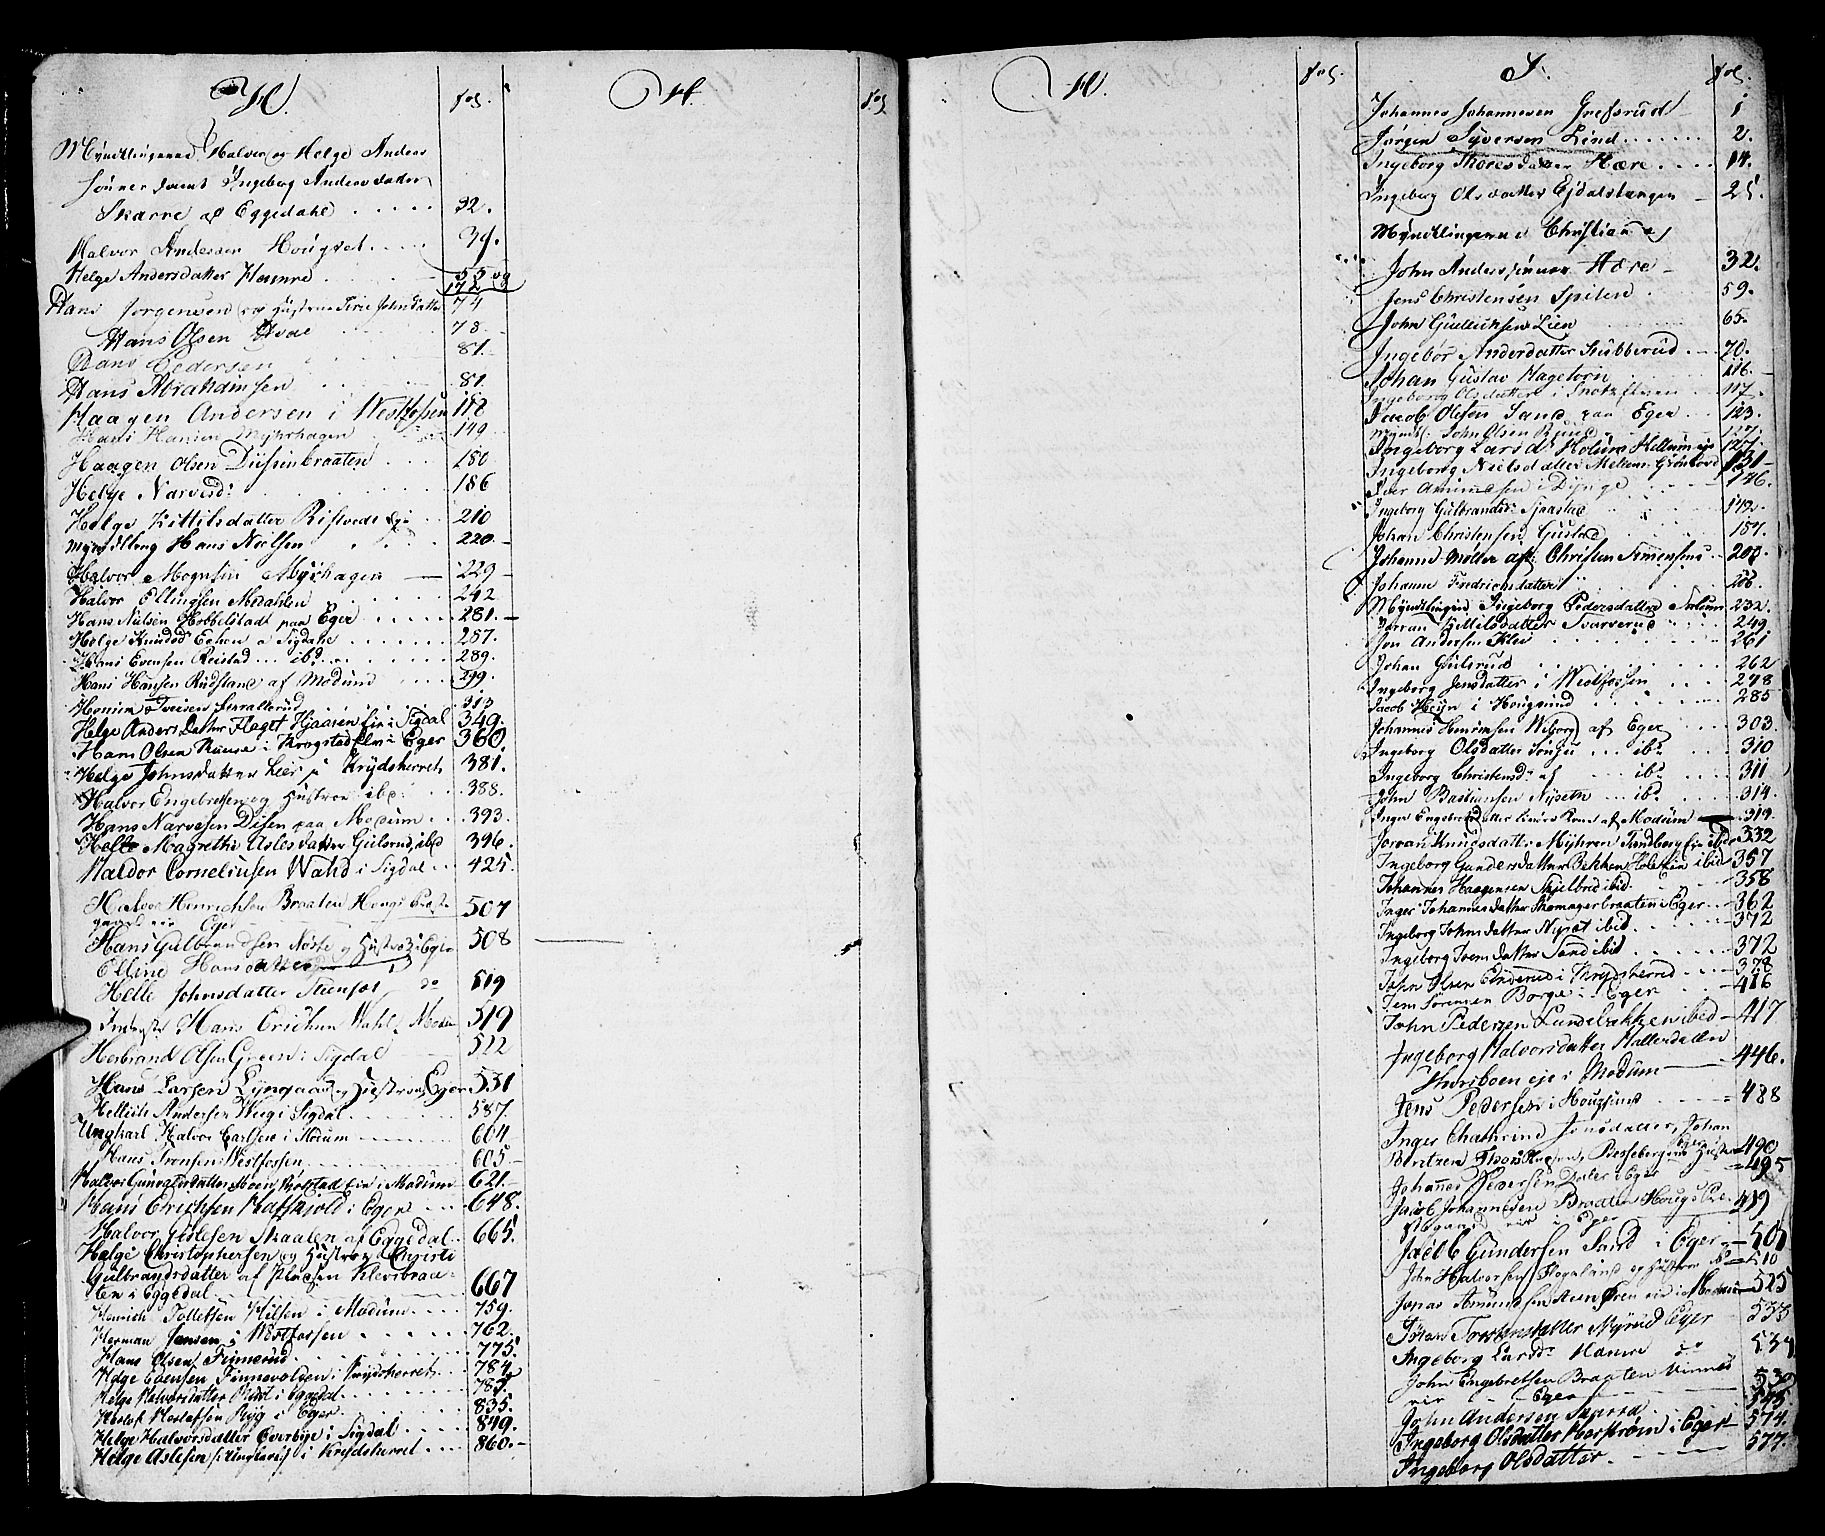 H. fol.
Myndtlingerne Halvor og Helge Anders
sønner samt Ingeborg Andersdatter
Skarre af Eggedahl ..... 32.
Halvor Andersen Hougset ..... 39.
Helge Andersdatter Hemre 55 og
172
Hans Jorgensen og Hustrue Siri John Datter 74
Hans Olsen Hvae 78
Hans Pedersen 81.
Hans Abrahamsen 81.
Haagen Andersen i Westfossen 118
Hans Hansen Myhrhagen 149
Haagen Olsen Diisenbraaten .... 180
Helge Narvesd: 186
Helge Kittilsdatter Ristvedt Eje .. 210
Myndtling Hans Nielsen 220.
Halvor Mognsen Myrhagen 229
Halvor Ellingsen Modahlen 242
Hans Nielsen Hobbelstadt paa Eger ..... 281.
Helge Knudsd Eehen a Sigdahl ..... 287.
Hans Evensen Reistad ... ibd. ...... 289.
Hans Hansen Rudstand af Modum .... 299.
313
Helge Anders Datter Flaget Hjaasen Eie i Sigdal 349.
Hans Olsen Ruuse i Krogstadelv i Eger 360.
Helge Johnsdatter Lier i Krydsherret 381.
Halvor Engebretsen og Hustroe ibd: .. 388.
Hans Narvesen Disen paa Modum .. 393.
Helle Magrethe Aslesdatter Gulsrud, ibd 396.
Haldor Corneliusen Wahd i Sigdal .. 425.
Halvor Henrichsen Braaten Hougs Præste
gaard eie Eger 507
Hans Gulbrandsen Nøste og Hustroe i Eger 508
Elline Hansdatter
Helle Johnsdatter Steenset do 519
Hans Erichsen Wahl i Modum 519
Herbrand Olsen Green i Sigdal 522
Hans Larsen Lyngaas og Hustroe i Eger 531
Hellich Andersen Wiig i Sigdal ..... 587.
Ungkarl Halvor Carlsen i Modum 604
Hans Iversen i Westfossen 605
Halvor Gunderdatter Moen Krogstad Eie i Modum 621.
Hans Erichsen Ravskjold i Eger ... 648.
Halvor Gislesen Skaalen af Eggedal .. 665.
Helge Christophersen og Hustroe Christi
Gulbrandsdatter af Pladsen Klevsbraa-
ten i Eggedal 667
Henrich Tollefsen Hilsen i Modum .... 759.
Herman Jensen i Westfossen ..... 762.
Hans Olsen Finnerud ..... 775.
Helge Evensen Finnevolden i Krydsherret .. 782
Helge Halvorsdatter Rust i Eggedal .... 783.
Hoelof Hoelofsen Ryg i Eger 835.
Helge Halvorsdatter Overbye i Sigdal .... 849.
Helge Aslesen Ungkarl i Krydsherret .... 860.
H. fol
H. fol.
I. fol.
Johannes Johannesen Grefsrud 1
Jørgen Syversen Lind ....... 2.
Ingeborg Thoresdatter Hære .... 14.
Ingeborg Olsdatter Ejdalstangen 25.
Myndtlingerne Christian og
John Anderssønner Hære 32.
Jens Christensen Spiten 59.
John Gulliksen Lien 65.
Ingebor Andersdatter Stubberud ... 70.
Johan Gustav Hagetorn 116.
Ingeborg Olsdatter i Snotskleven .. 117.
Jacob Olsen Sand paa Eger .. 123.
Myndtl: John Olsen Ruud 127.
Ingeborg Larsd: Holum Hellum eje 127.
Ingeborg Nielsdatter Mellum Grønland 131
Iver Amundsen i Dynge 146.
Ingeborg Gulbrandsd: Sjaastad 172.
Johan Christensen Gustad 187.
Johanne Møller aff. Christen Simensens .. 203.
Johanne Fredrichsdatter 206
Myndtlingen Ingeborg Pedersdatter Solum 232.
Jorran Kittilsdatter Svarverud 249
Jon Andersen Klev 261
Johan Gulsrud 262
Ingeborg Jensdatter i Westfossen 278
Jacob Heyn i Hougsund 285
Johannes Henrichsen Wiborg af Eger 303.
Ingeborg Olsdatter ... ibd. 310
Ingeborg Christensd: af .... ibd 311
John Bastiansen Nyseth ... ibd 314.
Inger Engebretsdatter af Modum 319.
Jorran Knudsdatter Myhren Sandberg Eie ibd 332
Ingeborg Gundersdatter Bekken Holst Eie ibid 357
Johannes Haagensen Skjelbred ibid. 358
Inger Johannesdatter Skomagerbraaten i Eger ... 362
Ingeborg Johnsdatter Nyset ibid ..... 372
Ingeborg Iversdatter Sand ibid 372
John Olsen Enderud i Krydsherred .... 378
Jens Sørensen Borge i Eger 416
John Pedersen Lundebakken ibid 417
Ingeborg Halvorsdatter Hallerdallen
eje i Modum 446.
Jens Pedersen i Hougsund ..... 488
Inger Chathrine Jonsdatter, Johan
490
Johannes Iversen i Eger 495
Jacob Johannesen Braaten Hougs Præ-
stegaard eie i Eger 499
Jacob Gundersen Sand i Eger 501
John Halvorsen og Hustroe ibd 510
Jonas Amundsen Steen Øren eie i Modum 525
Torstensdatter Myrud Eger 533
Ingeborg Larsd: Hamre do 534
John Engebretsen Braaten Vinnes
eie i Eger 539
John Andersen Skarra 545
Ingeborg Olsdatter Horstrøm i Eger 574.
Ingeborg Olsdatter 577.